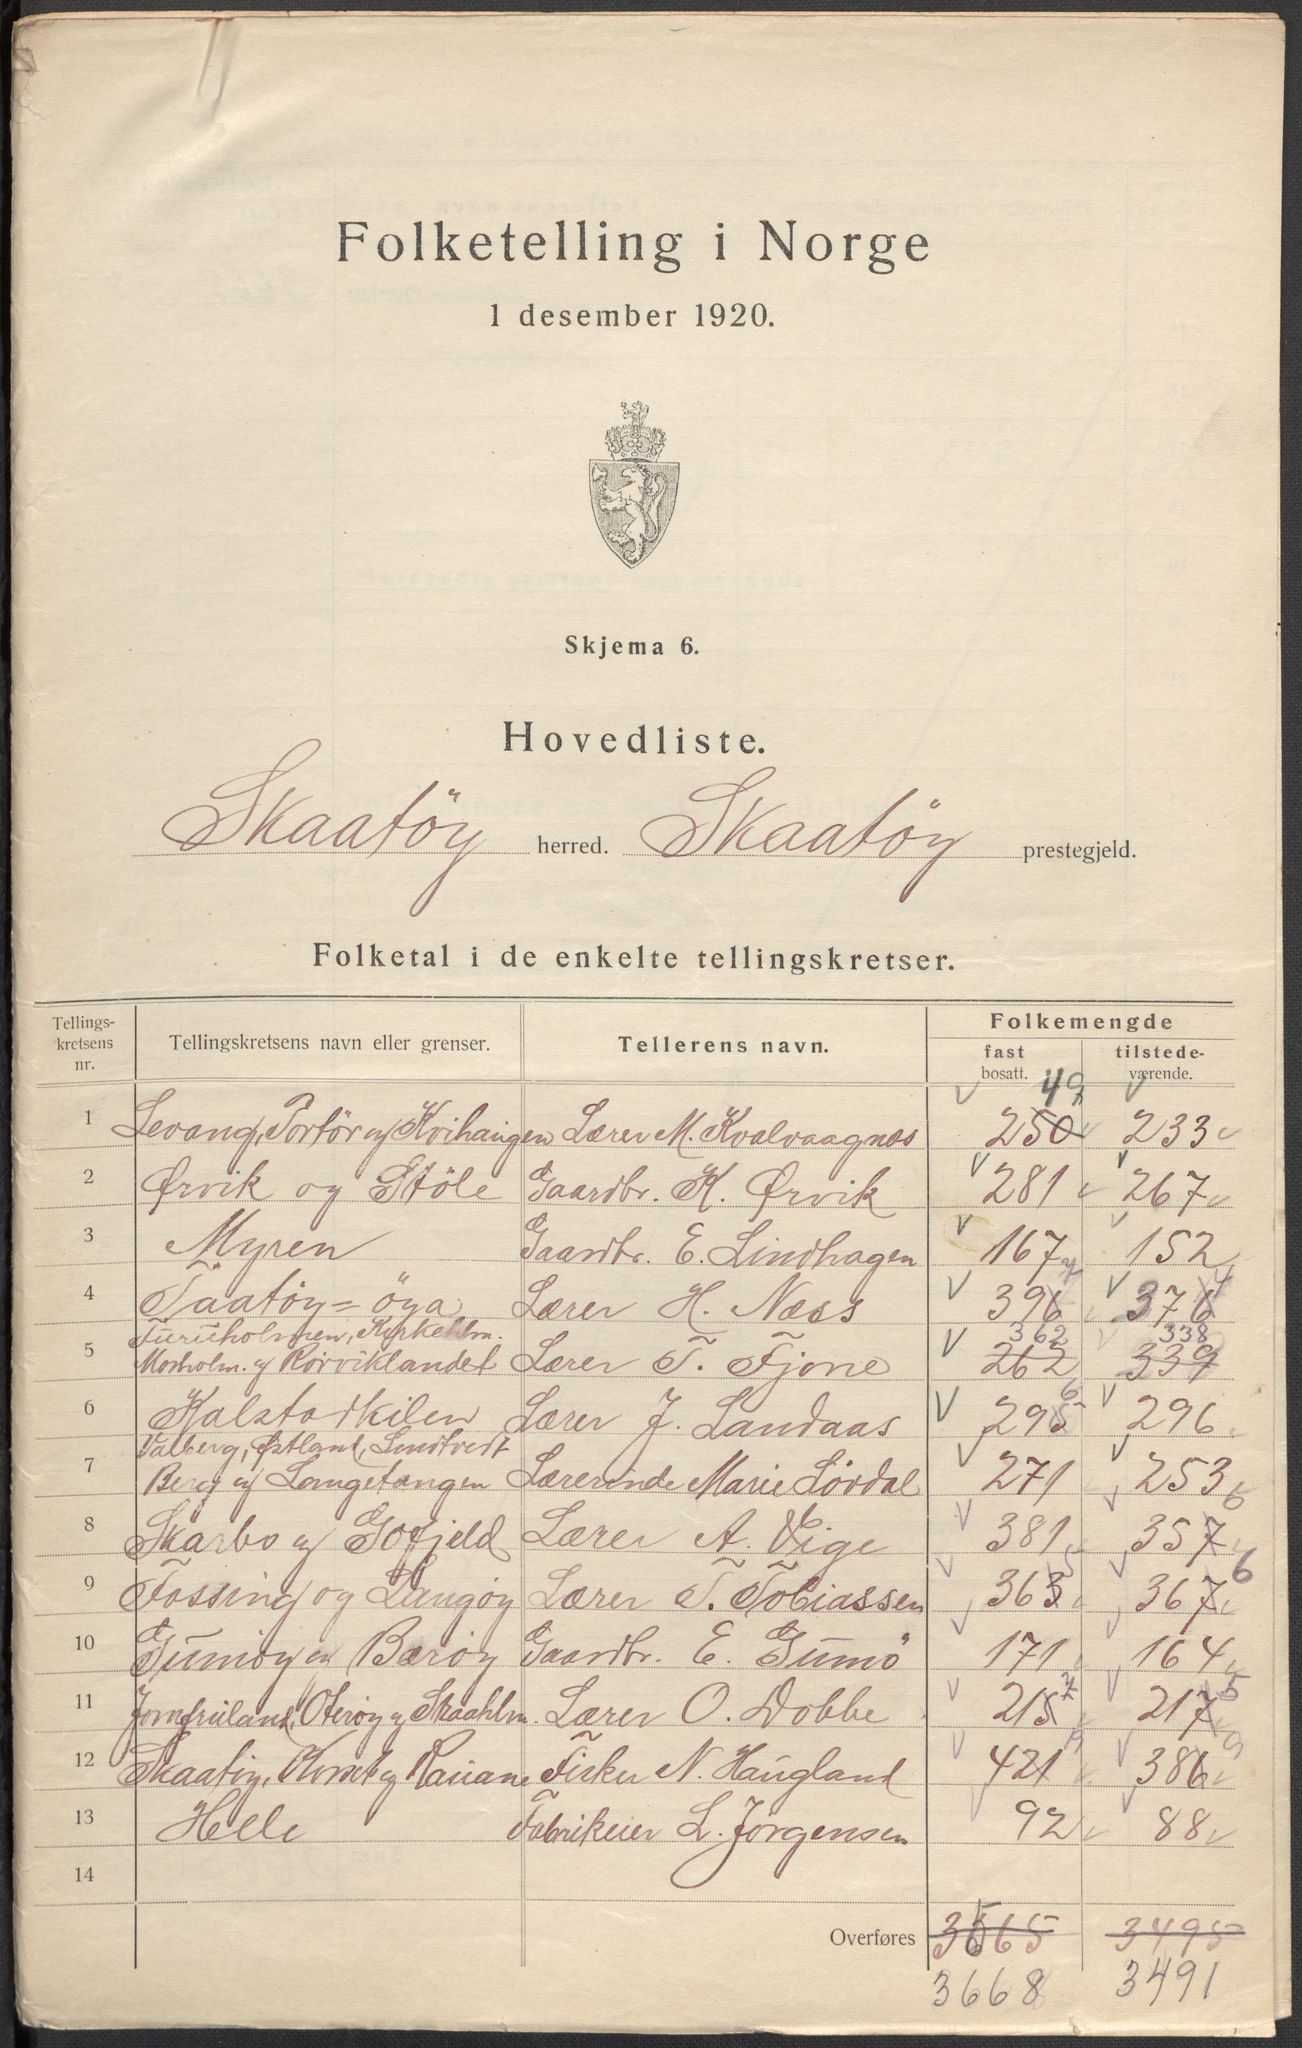 Folketelling i Norge
1 desember 1920.
Skjema 6.
Hovedliste.
Skaatöy herred. Skaatöy prestegjeld.
Folketal i de enkelte tellingskretser.
Tellings-kretsens nr. Tellingskretsens navn eller grenser. Tellerens navn. Folkemengde
fast bosatt. tilstede-værende.
49
1 Levang, Portör og Kvihaugen Lærer M. Kvalvaagnæs 250 233
2 Ørvik og Stöle Gaardbr. K. Ørvik 281 267
3 Myren Gaardbr. E. Lindhagen 167 152
4 Taatöy=öya Lærer H. Næss 396 376 4
Furuholmen, Kirkehlm. 362 338
5 Morholm. og Rörviklandet Lærer T. Fjone 262 339
6 Kalstadkilen Lærer J. Landaas 295 6 296
Valberg, Østland, Lindtvedt
7 Berg og Langetangen Lærerinde Marie Lövdal 271 253
8 Skarbo og Gofjeld Lærer A. Vige 381 357 6
9 Fossing og Langöy Lærer T. Tobiassen 363 5 367 6
10 Gumöy og Bæröy Gaardbr. E. Gumö 171 164
11 Jomfruland, Oteröy og Skaahlm. Lærer O. Dobbe 215 7 217 5
12 Skaatöy, Korset og Rauane Fisker N. Haugland 421 9 386 9
13 Helle Fabrikeier L. Jörgensen 92 88
14
Overføres 3565 3495
3668 3491